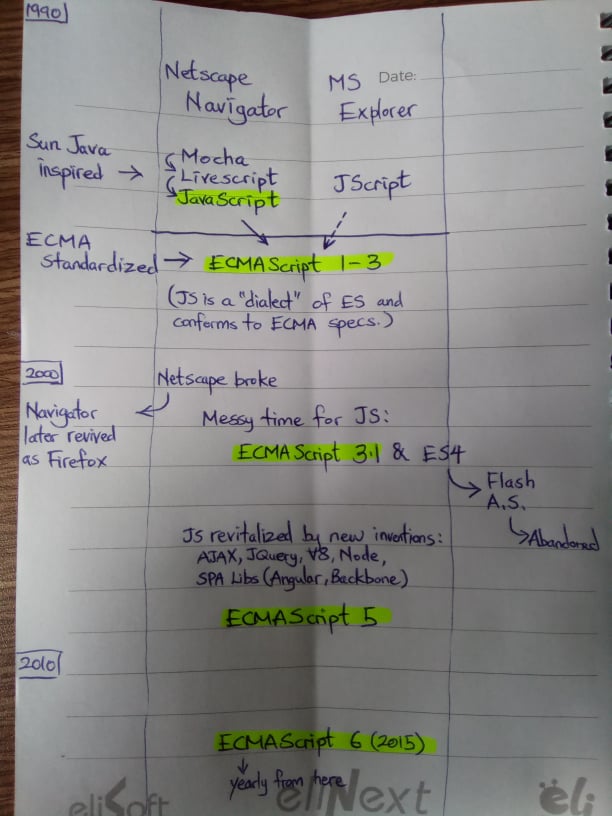 1990
Netscape
Navigator
MS Date:
Explorer
Sun Java
inspired →
Mocha
Livescript
JavaScript
JScript
ECMA
Standardized →
ECMAScript 1-3
(JS is a "dialect" of ES and
conforms to ECMA specs.)
2000
Netscape broke
Navigator
later revived
as Firefox
Messy time for JS:
ECMAScript 3.1 & ES4
Flash
A.S.
Abandoned
JS revitalized by new inventions:
AJAX, JQuery, V8, Node,
SPA Libs (Angular, Backbone)
ECMAScript 5
2010
ECMAScript 6 (2015)
yearly from here
eliSoft eliNext ëli